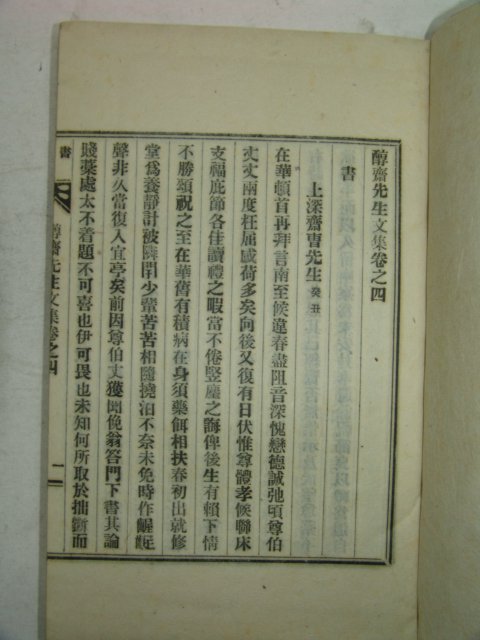 醇齋先生文集卷之四
書
上深齋曺先生 癸丑
在華頓首再拜言南至候違春盡阻音深愧戀德誠弛頃尊伯
丈丈兩度枉屈感荷多矣向後又復有日伏惟尊體孝候聯床
支福庇節各佳讀禮之暇當不倦竪塵之誨俾後生有賴下情
不勝頌祝之至在華舊有積病在身須藥餌相扶春初出就修
堂爲養靜計被隣閈少輩苦苦相隨撓泊不奈未免時作齷齪
聲非久當復入宜亭矣前因尊伯丈獲聞俛翁答門下書其論
賤藁處太不着題不可喜也伊可畏也未知何所取於拙藁而
書
醇齋先生文集卷之四
一